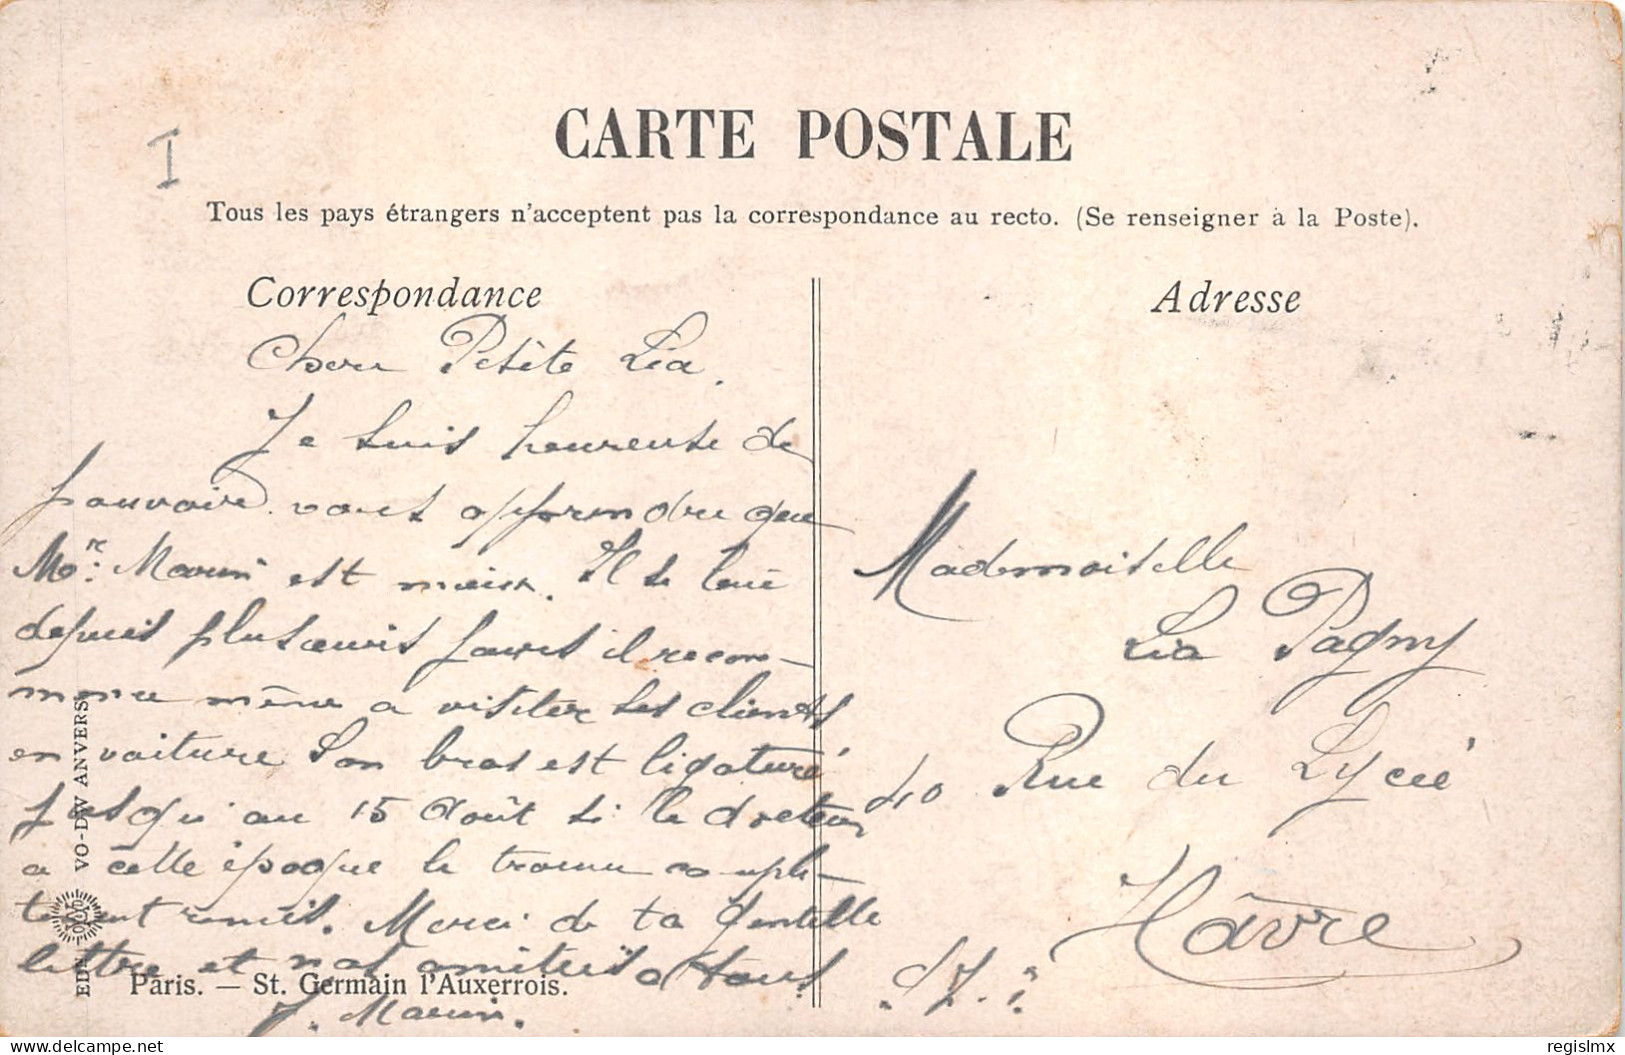 I
CARTE POSTALE
Tous les pays étrangers n'acceptent pas la correspondance au recto. (Se renseigner à la Poste).
Correspondance
Adresse
Petite Lia.
Je suis heureuse de
pouvoir vous apprendre que
Mor: est mieux. Il se lève
depuis plusieurs jours il recom-
mence même a visiter ses clients
en voiture Son bras est ligaturé
jusqu'au 15 Août si le docteur
a cette époque le trouve complè-
tement remis. Merci de ta gentille
lettre et nos amitiés a tous
J.
Mademoiselle
Lia Pagny
40 Rue du Lycée
Hâvre
S. I.
EDN VO-DW ANVERS
Paris. — St. Germain l'Auxerrois.
delcampe.net
regislmx